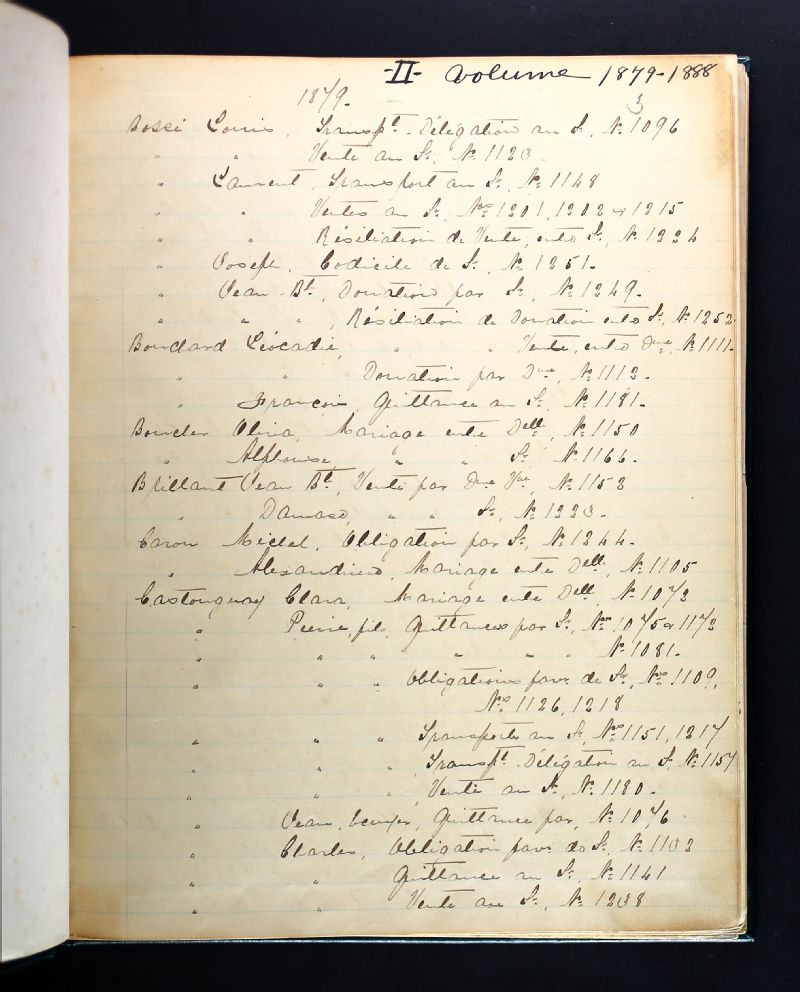 -II- volume 1879-1888
1879. 3
Bossé Louis, Transpt. Délégation au Sr, No 1096
" " Vente au Sr, No 1123.
" Laurent, Transport au Sr, No 1148
" " Ventes au Sr, Nos 1201, 1202 & 1215
" " Résiliation de Vente, entre Sr, No 1224
" Joseph, Codicile de Sr, No 1251.
" Jean-Bte, Donation par Sr, No 1249.
" " " , Résiliation de Donation entre Sr, No 1252.
Bouchard Léocadie, " " Vente, entre Dme, No 1111.
" " Donation par Dme, No 1112.
" François, Quittance au Sr, No 1181.
Boucher Olivia, Mariage entre Delle, No 1150
" Alphonse, " " Sr No 1166.
Brillant Jean Bte, Vente par Dme Vve, No 1152
" Damase, " " Sr, No 1223.
Caron Michel, Obligation par Sr, No 1244.
" Alexandrine, Mariage entre Delle, No 1105
Castonguay Clara, Mariage entre Delle, No 1072
" Pierre, fils, Quittances par Sr, Nos 1075 & 1172
" " " " " " No 1081.
" " " Obligations favr. de Sr, Nos 1109,
Nos 1126, 1218
" " " Transports au Sr, Nos 1151, 1217
" " " Transpt. Délégation au Sr, No 1157
" " " Vente au Sr, No 1180.
" Jean, écuyer, Quittance par, No 1076
" Charles, Obligation favr. do Sr, No 1132
" " Quittance au Sr, No 1141
" " Vente au Sr, No 1238